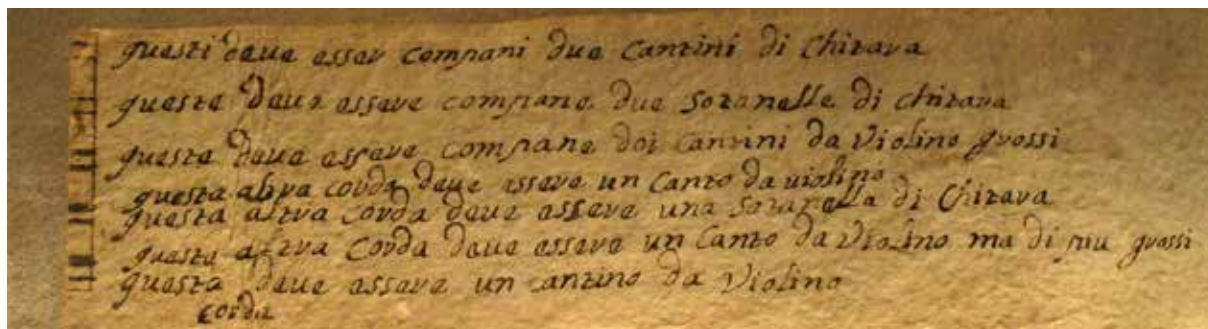 questi deue esser compani due Cantini di Chitara
queste deue essere compane due sotanelle di chitara
queste deue essere compane doi cantini da Violino grossi
questa altra corda deue essere un Canto da violino
questa altra corda deue essere una sotanella di Chitara
questa altra corda deue essere un Canto da Violino ma di piu grossi
questa deue essere un cantino da Violino
corda